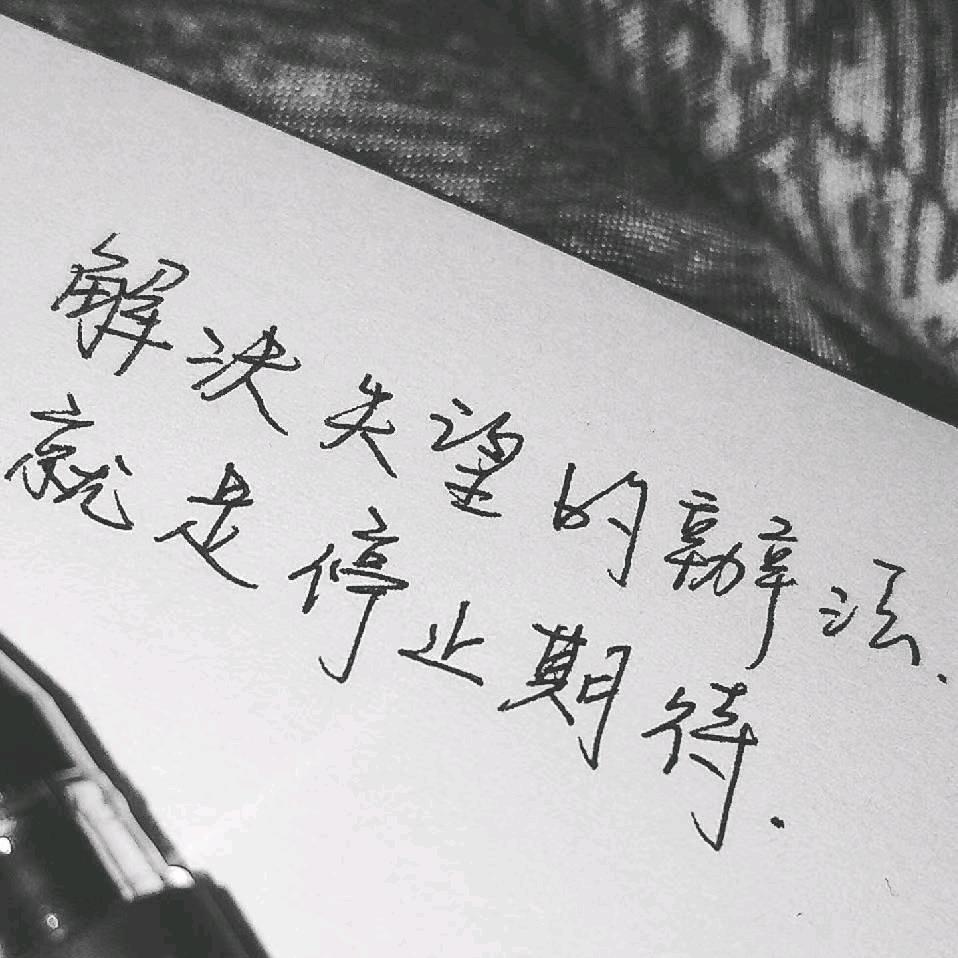 解决失望的辦法.
就是停止期待.